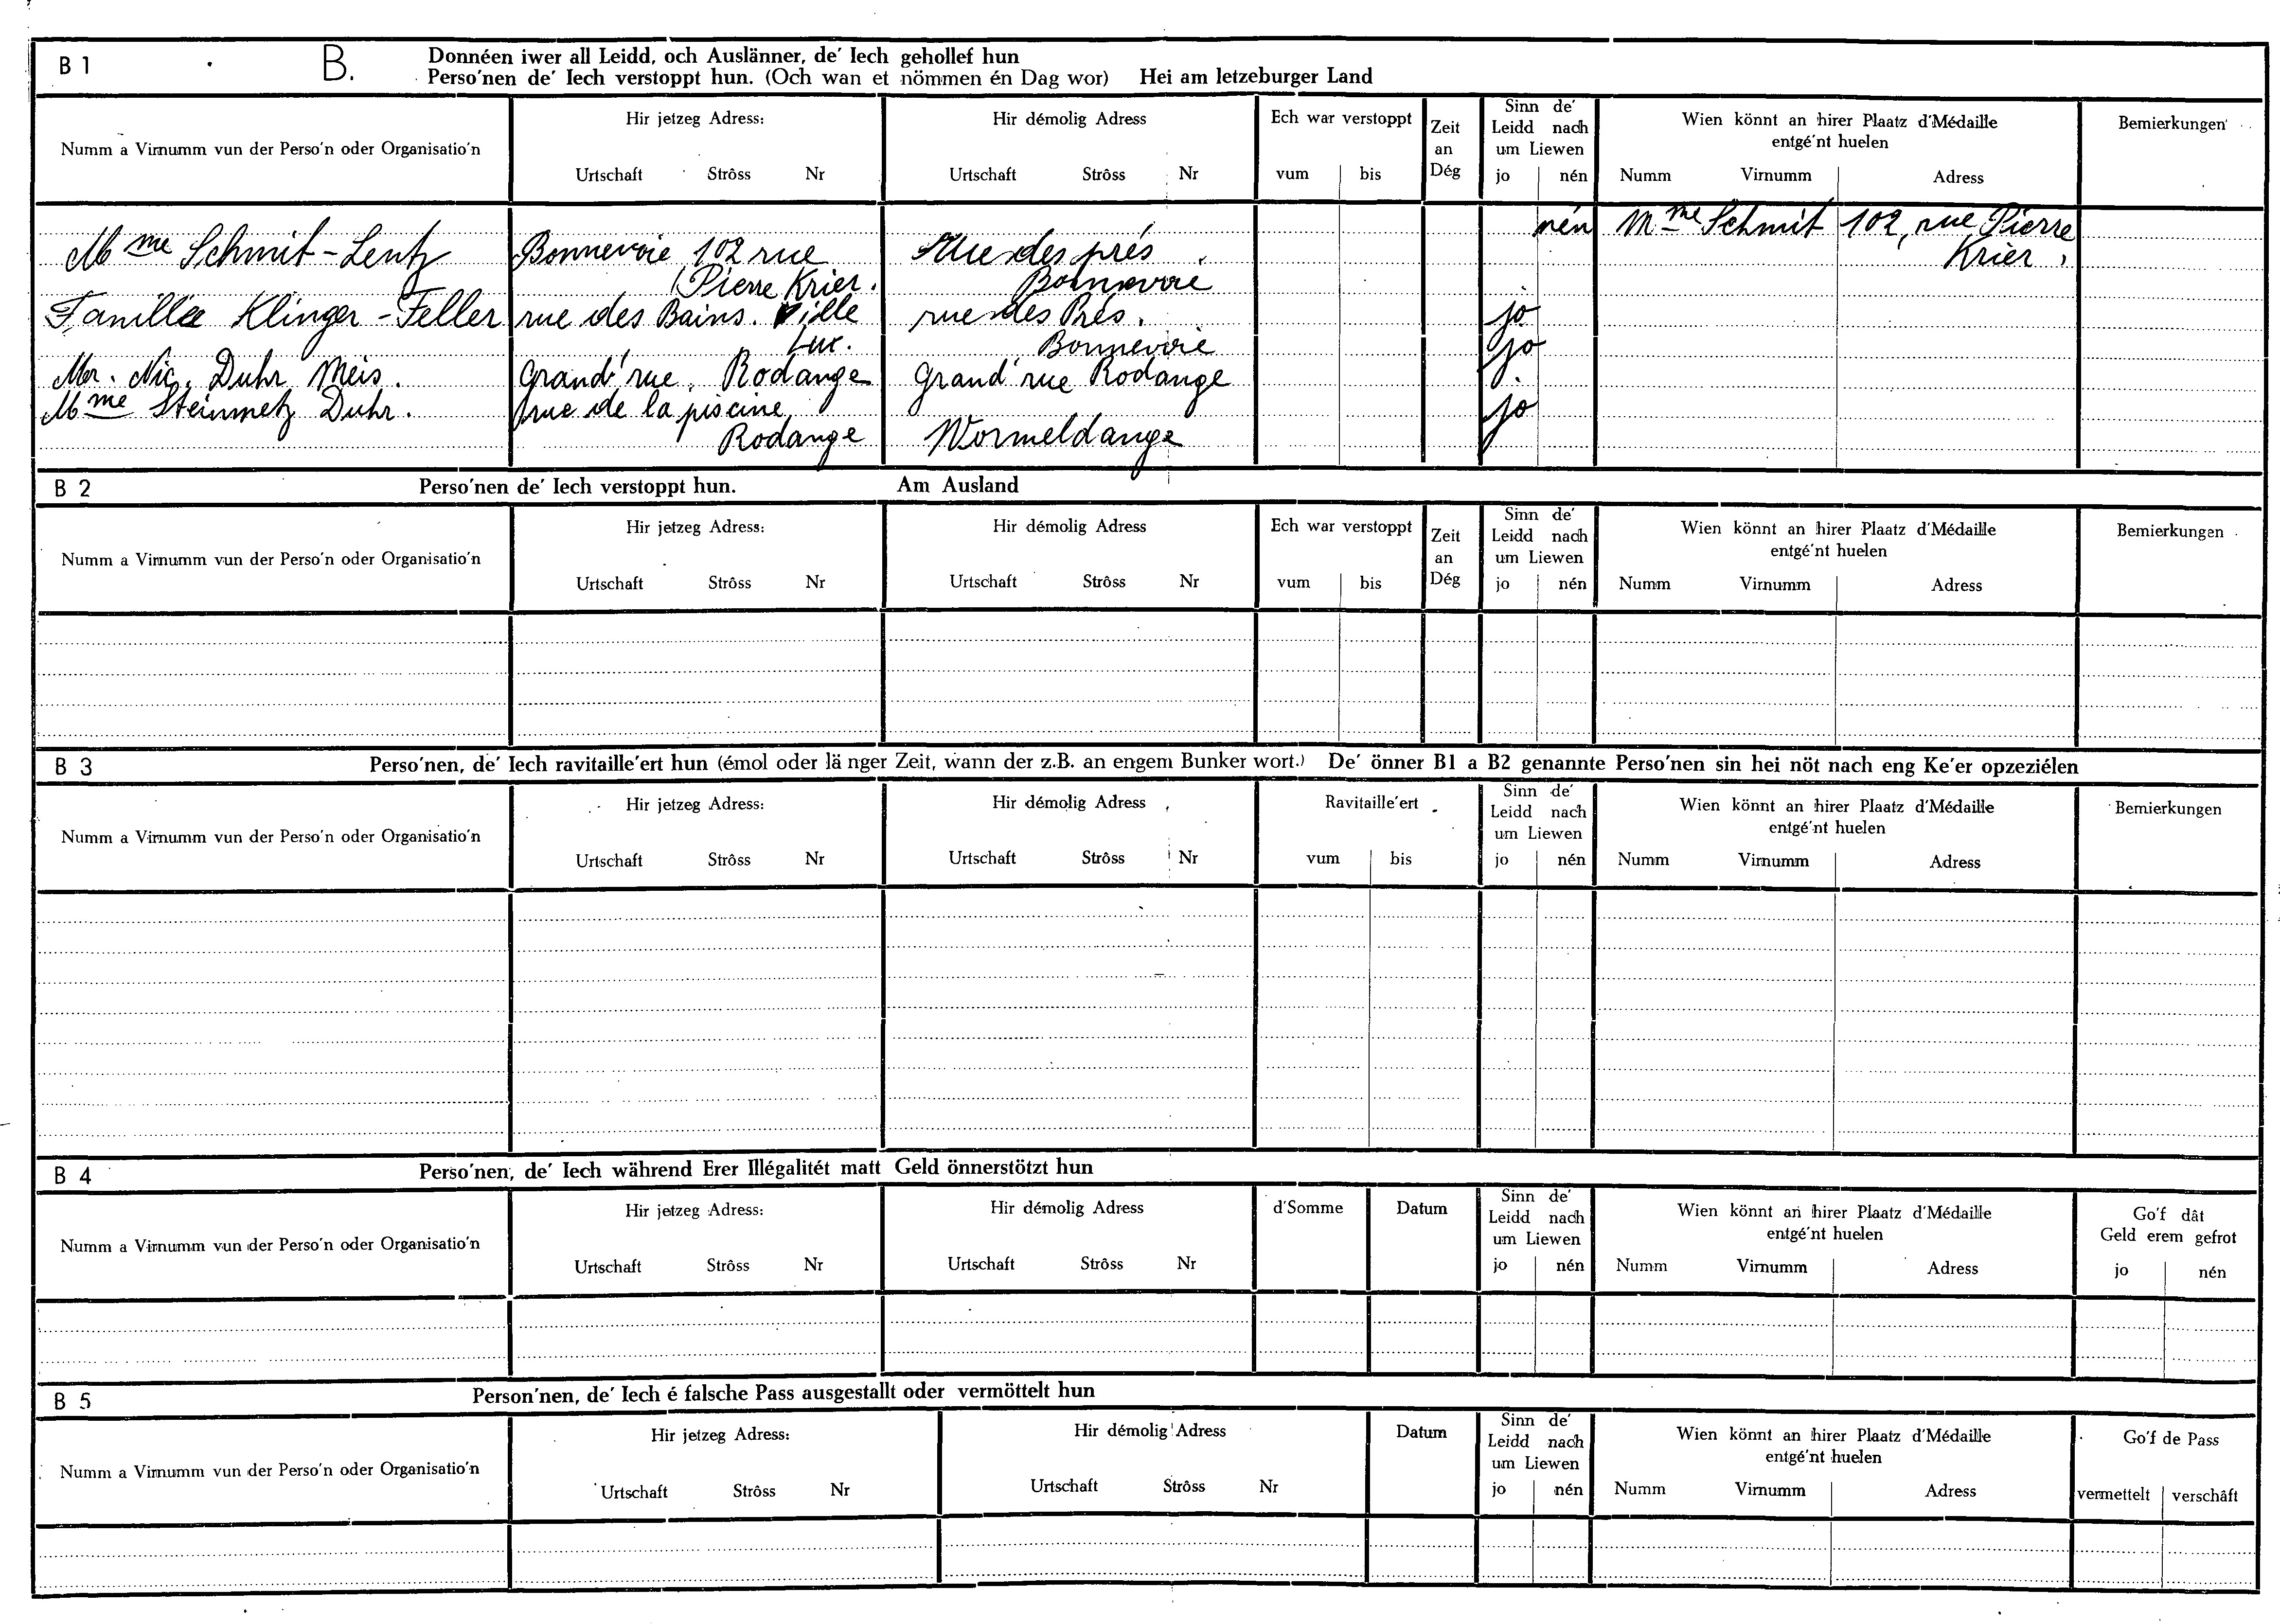 B 1 B. Donnéen iwer all Leidd, och Auslänner, de' Iech gehollef hun
Perso'nen de' Iech verstoppt hun. (Och wan et nömmen én Dag wor) Hei am letzeburger Land
Numm a Virnumm vun der Perso'n oder Organisatio'n
Hir jetzeg Adress:
Urtschaft Strôss Nr
Hir démolig Adress
Urtschaft Strôss Nr
Ech war verstoppt
vum bis
Zeit
an
Dég
Sinn de'
Leidd nach
um Liewen
jo nén
Wien könnt an hirer Plaatz d'Médaille
entgé'nt huelen
Numm Virnumm Adress
Bemierkungen
nén Mme Schmit 102, rue Pierre
Mme Schmit-Lentz Bonnevoie 102 rue Rue des prés Krier.
Pierre Krier. Bonnevoie
Famille Klinger-Feller rue des Bains. Ville rue des Prés. jo
Lux. Bonnevoie jo
Mr. Nic. Duhr Meis. Grand'rue. Rodange Grand'rue Rodange
Mme Steinmetz Duhr. rue de la piscine jo
Rodange Wormeldange
B 2 Perso'nen de' Iech verstoppt hun. Am Ausland
Numm a Virnumm vun der Perso'n oder Organisatio'n
Hir jetzeg Adress:
Urtschaft Strôss Nr
Hir démolig Adress
Urtschaft Strôss Nr
Ech war verstoppt
vum bis
Zeit
an
Dég
Sinn de'
Leidd nach
um Liewen
jo nén
Wien könnt an hirer Plaatz d'Médaille
entgé'nt huelen
Numm Virnumm Adress
Bemierkungen
B 3 Perso'nen, de' Iech ravitaille'ert hun (émol oder länger Zeit, wann der z.B. an engem Bunker wort.) De' önner B1 a B2 genannte Perso'nen sin hei nöt nach eng Ke'er opzeziélen
Numm a Virnumm vun der Perso'n oder Organisatio'n
Hir jetzeg Adress:
Urtschaft Strôss Nr
Hir démolig Adress
Urtschaft Strôss Nr
Ravitaille'ert
vum bis
Sinn de'
Leidd nach
um Liewen
jo nén
Wien könnt an hirer Plaatz d'Médaille
entgé'nt huelen
Numm Virnumm Adress
Bemierkungen
B 4 Perso'nen, de' Iech während Erer Illégalitét matt Geld önnerstötzt hun
Numm a Virnumm vun der Perso'n oder Organisatio'n
Hir jetzeg Adress:
Urtschaft Strôss Nr
Hir démolig Adress
Urtschaft Strôss Nr
d'Somme
Datum
Sinn de'
Leidd nach
um Liewen
jo nén
Wien könnt an hirer Plaatz d'Médaille
entgé'nt huelen
Numm Virnumm Adress
Go'f dât
Geld erem gefrot
jo nén
B 5 Person'nen, de' Iech é falsche Pass ausgestallt oder vermöttelt hun
Numm a Virnumm vun der Perso'n oder Organisatio'n
Hir jetzeg Adress:
Urtschaft Strôss Nr
Hir démolig Adress
Urtschaft Strôss Nr
Datum
Sinn de'
Leidd nach
um Liewen
jo nén
Wien könnt an hirer Plaatz d'Médaille
entgé'nt huelen
Numm Virnumm Adress
Go'f de Pass
vermettelt verschâft